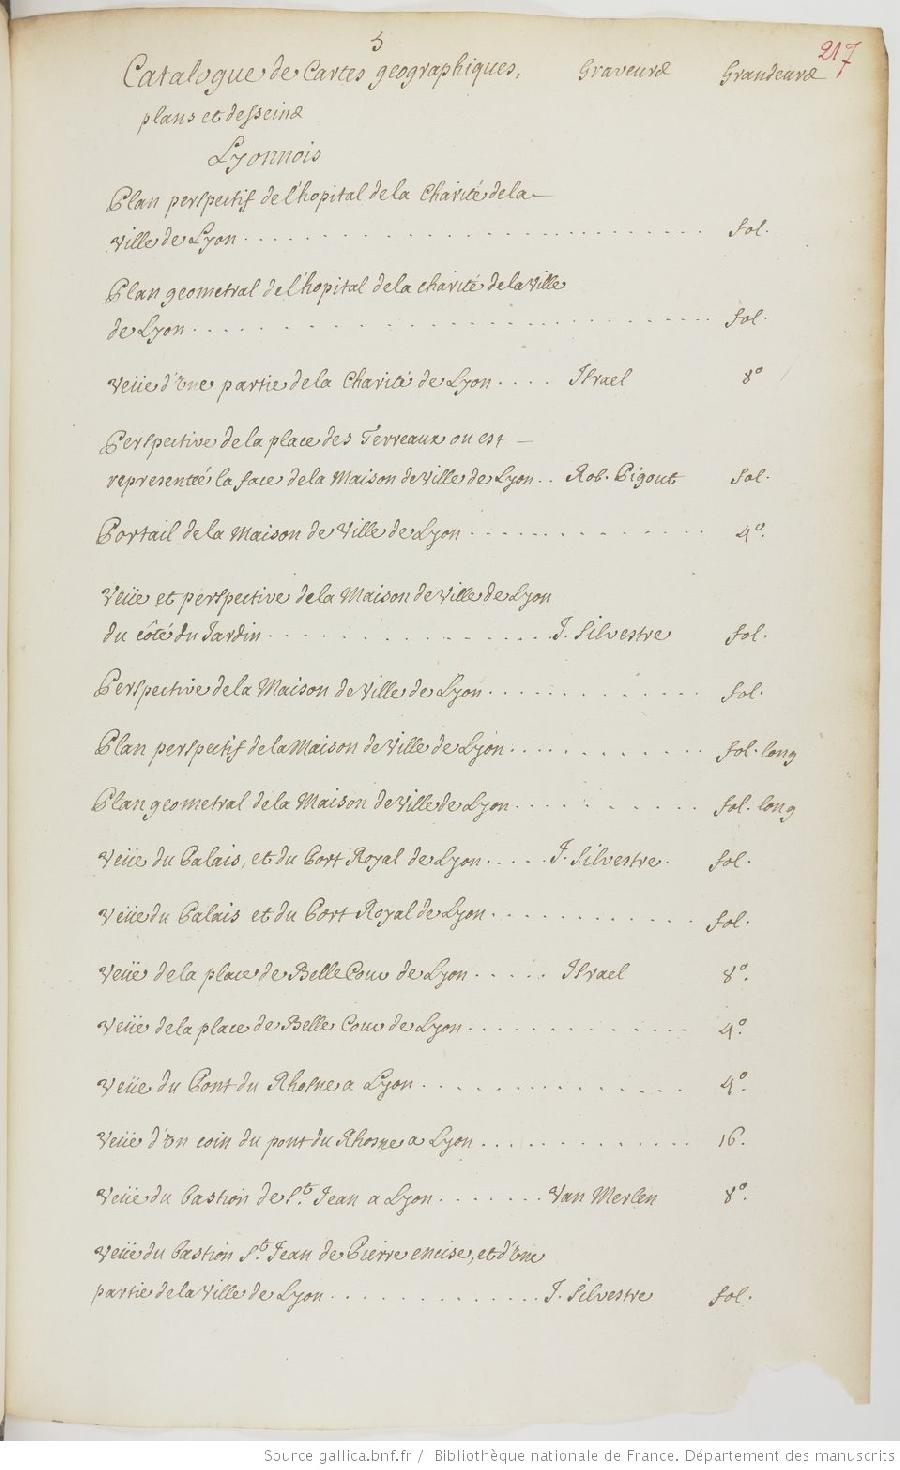 5
217
Catalogue de Cartes geographiques, Graveurs Grandeurs
plans et desseins
Lyonnois
Plan perspectif de l'hopital de la Charité de la
Ville de Lyon . . . . fol.
Plan geometral de l'hopital de la charité de la Ville
de Lyon . . . . fol.
Veüe d'Une partie de la Charité de Lyon . . . . Israel 8°
Perspective de la place des Terreaux ou est
representée la face de la Maison de Ville de Lyon . . Rob. Pigout fol.
Portail de la Maison de Ville de Lyon . . . . 4°.
Veüe et perspective de la Maison de Ville de Lyon
du côté du Jardin . . . . J. Silvestre fol.
Perspective de la Maison de Ville de Lyon . . . . fol.
Plan perspectif de la Maison de Ville de Lyon . . . . fol. long
Plan geometral de la Maison de Ville de Lyon . . . . fol. long
Veüe du Palais, et du Port Royal de Lyon . . . . J. Silvestre fol.
Veüe du Palais et du Port Royal de Lyon . . . . fol.
Veüe de la place de Belle Cour de Lyon . . . . Israel 8°.
Veüe de la place de Belle Cour de Lyon . . . . 4°.
Veüe du Pont du Rhosne a Lyon . . . . 4°.
Veüe d'Un coin du pont du Rhosne a Lyon . . . . 16.
Veüe du bastion de St. Jean a Lyon . . . . Van Merlen 8°.
Veüe du bastion St. Jean de Pierre encise, et d'Une
partie de la Ville de Lyon . . . . J. Silvestre fol.
Source gallica.bnf.fr / Bibliothèque nationale de France. Département des manuscrits